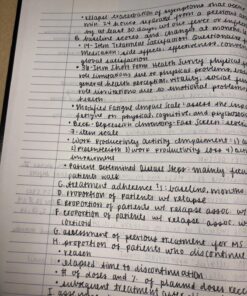 • relapse: exacerbation of symptoms that occur
min. 24 hours separate from a previous
by at least 30 days w/ one fever or infec
B. baseline scores and changes at months
• 14-Item Treatment Satisfaction Questionnaire
Medication: side effects, effectiveness, conve
global satisfaction
• 36-Item Short Form Health Survey: physical
role limitations due to physical problems,
general health perception, vitality, social
role limitations due to emotional problems
health
• Modified Fatigue Impact Scale: assess the im
fatigue on physical, cognitive, and psychosocial
• Beck Depression Inventory-Fast Screen:
7-item scale
• Work Productivity Activity Impairment: 1)
2) Presenteeism 3) Work productivity loss 4)
impairment
• Patient Determined Disease Steps: mainly
patients walk
C. treatment adherence : baseline, months
D. proportion of patients w/ relapse
E. proportion of patients w/ relapse assoc. w/
F. proportion of patients w/ relapse assoc. w/
G. assessment of previous treatment for MS
H. proportion of patients who discontinue
• reason
• elapsed time to discontinuation
• # of doses and % of planned doses
• subsequent treatment
I.